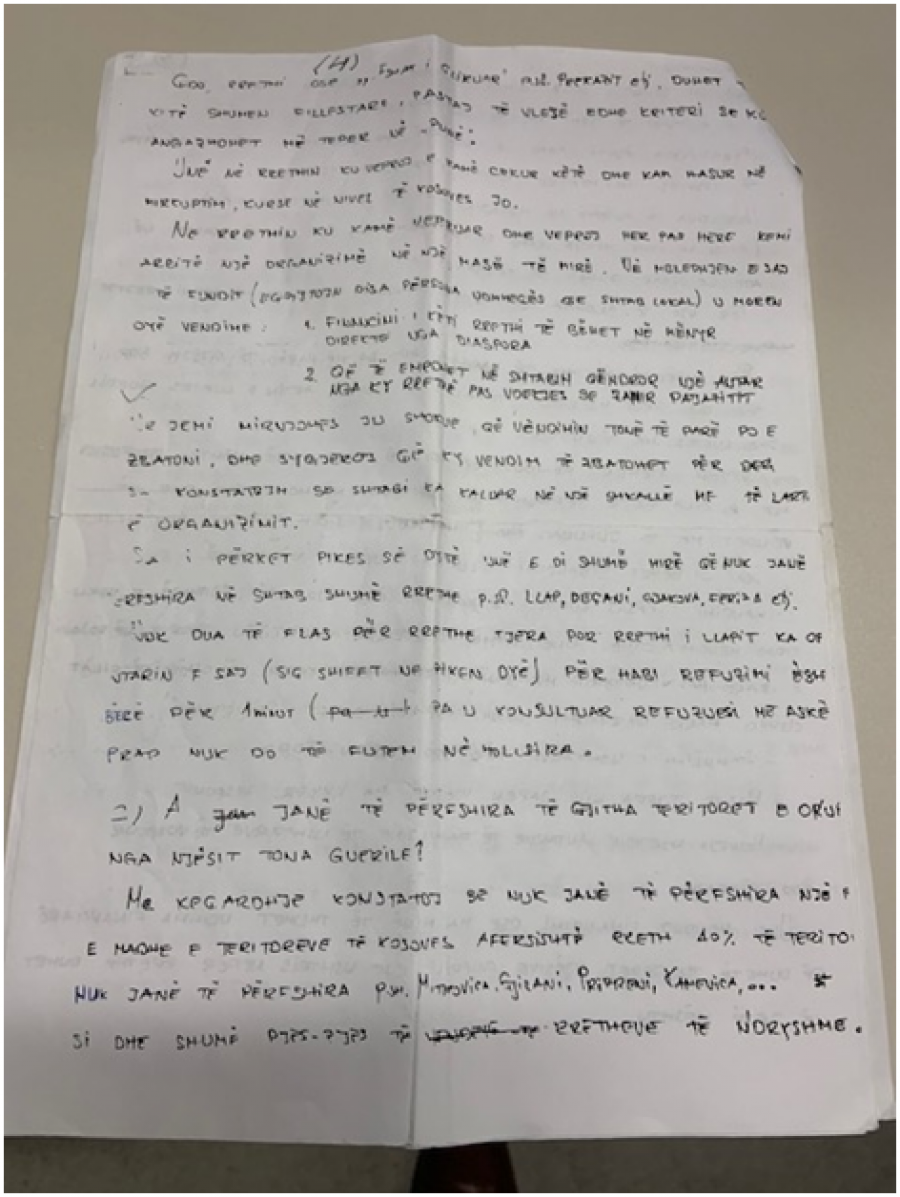 (4)
RRETHI OSE " I P.SH. PREKAZIT etj, DUHET
SHUMEN FILLESTARE, PASTAJ TË VLEJË EDHE KRITERI SE
ANGAZHOHET MË TEPER NË "PUNË".
UNË NË RRETHIN KU VEPROJ E KAMË CEKUR KËTË DHE KAM HASUR NË
MIRKUPTIM, KURSE NË NIVEL TË KOSOVES JO.
NË RRETHIN KU KAMË VEPRUAR DHE VEPROJ HER PAS HERE KEMI
ARRITË NJË ORGANIZIMË NË NJË MASË TË MIRË. NË MBLEDHJEN E SAJ
TË FUNDIT ( DISA PËRSONA OSE SHTAB LOKAL) U MOREN
DYTË VENDIME: 1. FINANCIMI I KËTI RRETHI TË BËHET NË MËNYR
DIREKTE NGA DIASPORA
2. QË TË EMROHET NË SHTABIN QËNDROR NJË ANTAR
NGA KY RRETHË PAS VDEKJES SË ZAHIR PAJAZITIT
JEMI MIRNJOHËS JU SHOKVE, QË VENDIMIN TONË TË PARË PO E
ZBATONI, DHE SYGJEROJ QË KY VENDIM TË ZBATOHET PËR DERI
KONSTATOJM SE SHTABI KA KALUAR NË NJË SHKALLË MË TË LARTË
E ORGANIZIMIT.
SA I PËRKET PIKES SË DYTË UNË E DI SHUMË MIRË QË NUK JANË
ERFSHIRA NË SHTAB SHUMË RRETHE P.SH. LLAP, DEÇANI, GJAKOVA, FERIZA etj.
NUK DUA TË FLAS PËR RRETHE TJERA POR RRETHI I LLAPIT KA OF
NTARIN E SAJ (SIQ SHIFET NË PIKEN DYTË) PËR HABI REFUZIMI ËSH
BËRË PËR 1 minut ( PA U KONSULTUAR REFUZUESI ME ASKË
PRAP NUK DO TË FUTEM NË HOLLSIRA.
2) A JANË TË PËRFSHIRA TË GJITHA TERITORET E OKU
NGA NJËSIT TONA GUERILE?
ME KEQARDHJE KONSTATOJ SE NUK JANË TË PËRFSHIRA NJË P
E MADHE E TERITOREVE TË KOSOVËS AFËRSISHTË RRETH 40% TË TERITO
NUK JANË TË PËRFSHIRA P.SH. MITROVICA, GJILANI, PRIZRENI, KAMENICA, ...
SI DHE SHUMË PJES-PJES TË RRETHEVE TË NDRYSHME.